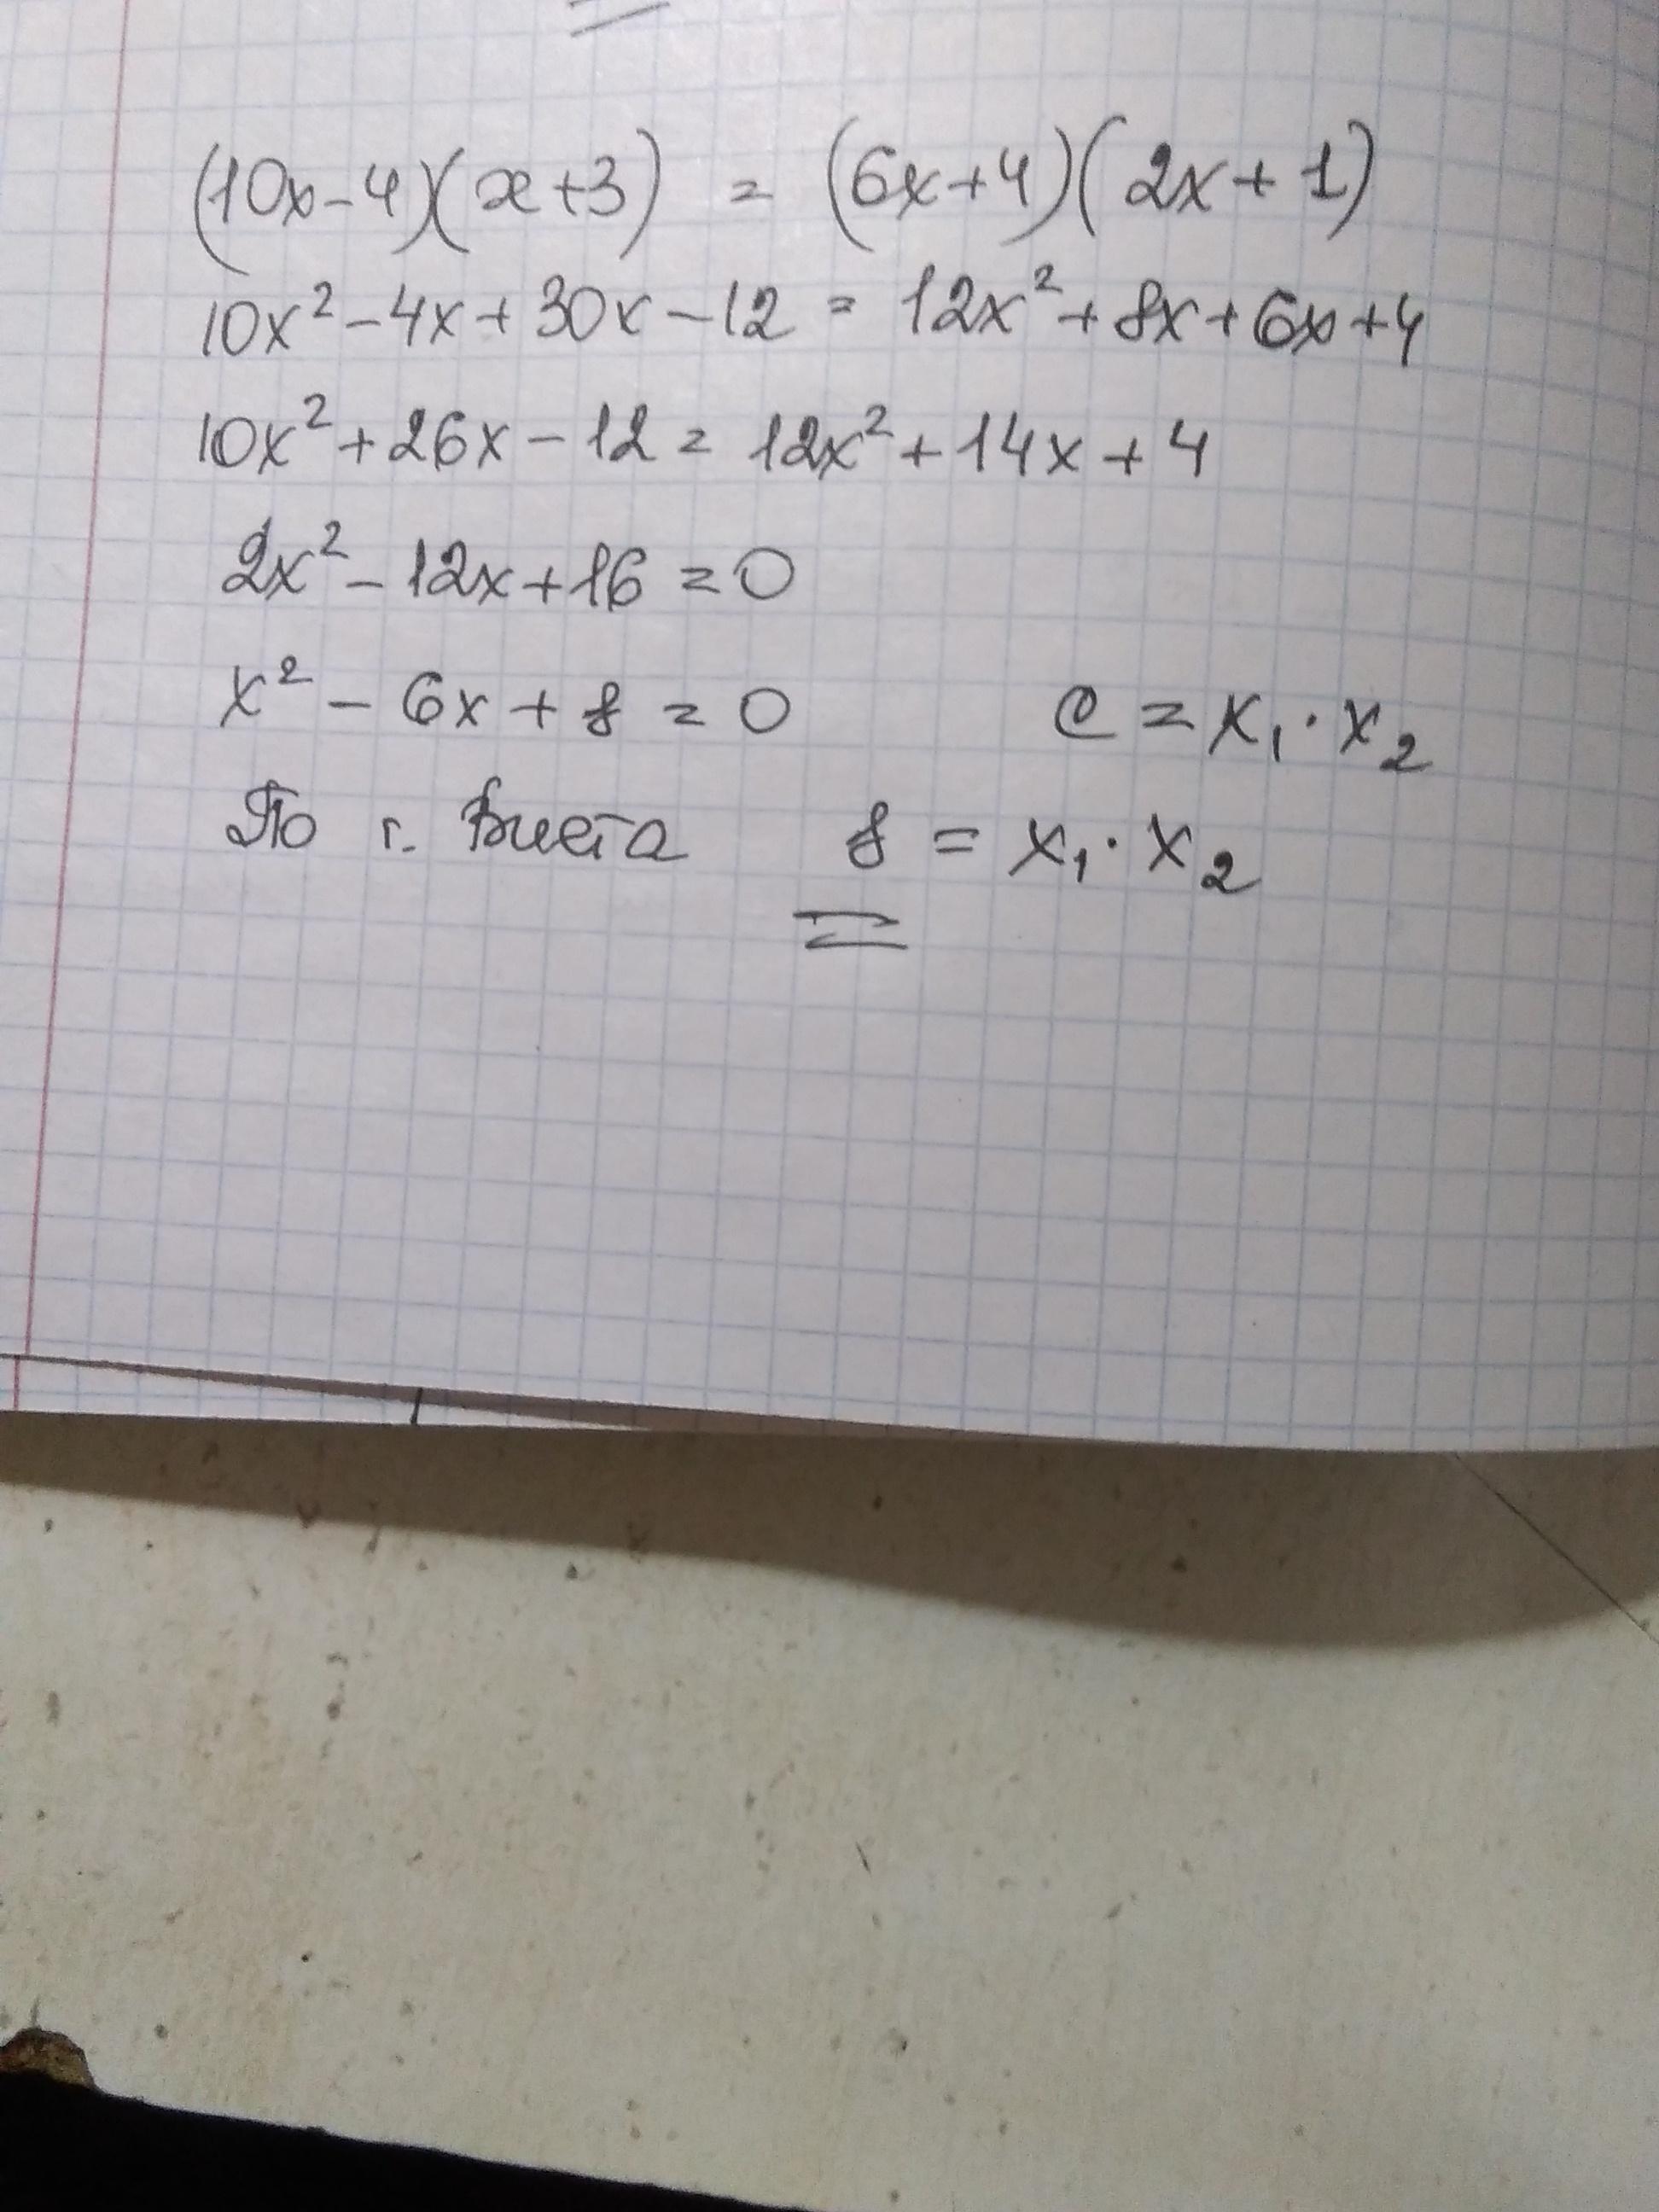 (10x-4)(x+3) = (6x+4)(2x+1)
10x²-4x+30x-12 = 12x²+8x+6x+4
10x²+26x-12=12x²+14x+4
2x²-12x+16=0
x²-6x+8=0 c=x₁·x₂
По т. Виета 8=x₁·x₂